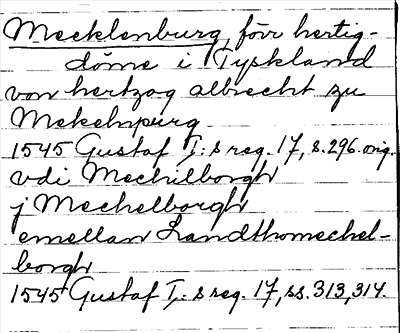 Mecklenburg, förr hertig-
döme i Tyskland
von hertzog albrecht zu
Mekelnpurg
1545 Gustaf I:s reg. 17, s. 296. orig.
vdi Mechilborgh
j Mechelborgh
emellan Landthomechel-
borgh
1545 Gustaf I:s reg. 17, ss. 313, 314.